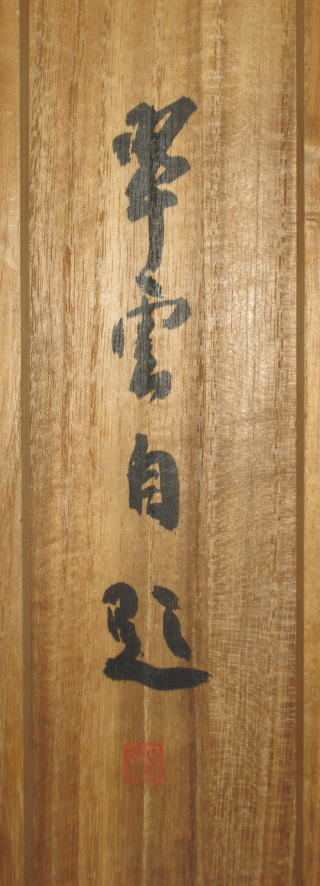 翠雲自題